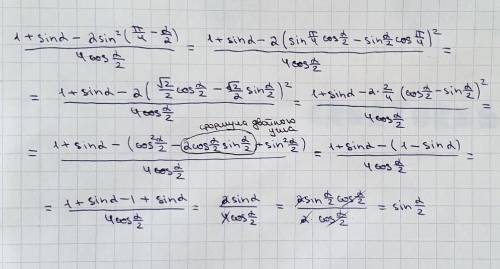 (1 + sinα − 2sin²(π/4 − α/2)) / (4cos α/2) = (1 + sinα − 2(sin π/4 cos α/2 − sin α/2 cos π/4)²) / (4cos α/2) =
= (1 + sinα − 2(√2/2 cos α/2 − √2/2 sin α/2)²) / (4cos α/2) = (1 + sinα − 2·2/4 (cos α/2 − sin α/2)²) / (4cos α/2) =
формула двойного
угла
= (1 + sinα − (cos² α/2 − 2cos α/2 sin α/2 + sin² α/2)) / (4cos α/2) = (1 + sinα − (1 − sinα)) / (4cos α/2) =
= (1 + sinα − 1 + sinα) / (4cos α/2) = 2sinα / (4cos α/2) = (2sin α/2 cos α/2) / (2 cos α/2) = sin α/2